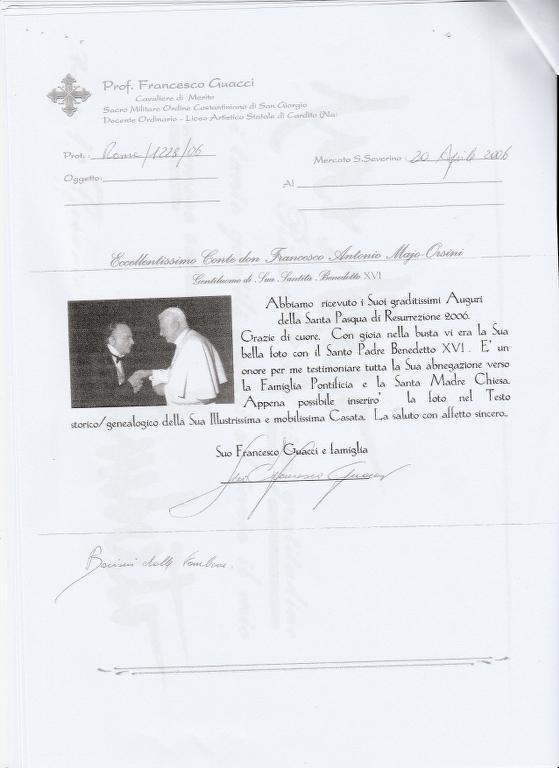 Prof. Francesco Guacci
Cavaliere di Merito
Sacro Militare Ordine Costantiniano di San Giorgio
Docente Ordinario - Liceo Artistico Statale di Cardito (Na)
Prot.: Roma/1228/06
Mercato S.Severino 20 Aprile 2006
Oggetto:
Al
Eccellentissimo Conte don Francesco Antonio Majo-Orsini
Gentiluomo di Sua Santità Benedetto XVI
Abbiamo ricevuto i Suoi graditissimi Auguri
della Santa Pasqua di Resurrezione 2006.
Grazie di cuore. Con gioia nella busta vi era la Sua
bella foto con il Santo Padre Benedetto XVI. E' un
onore per me testimoniare tutta la Sua abnegazione verso
la Famiglia Pontificia e la Santa Madre Chiesa.
Appena possibile inseriro' la foto nel Testo
storico/genealogico della Sua Illustrissima e mobilissima Casata. La saluto con affetto sincero..
Suo Francesco Guacci e famiglia
Suo Francesco Guacci